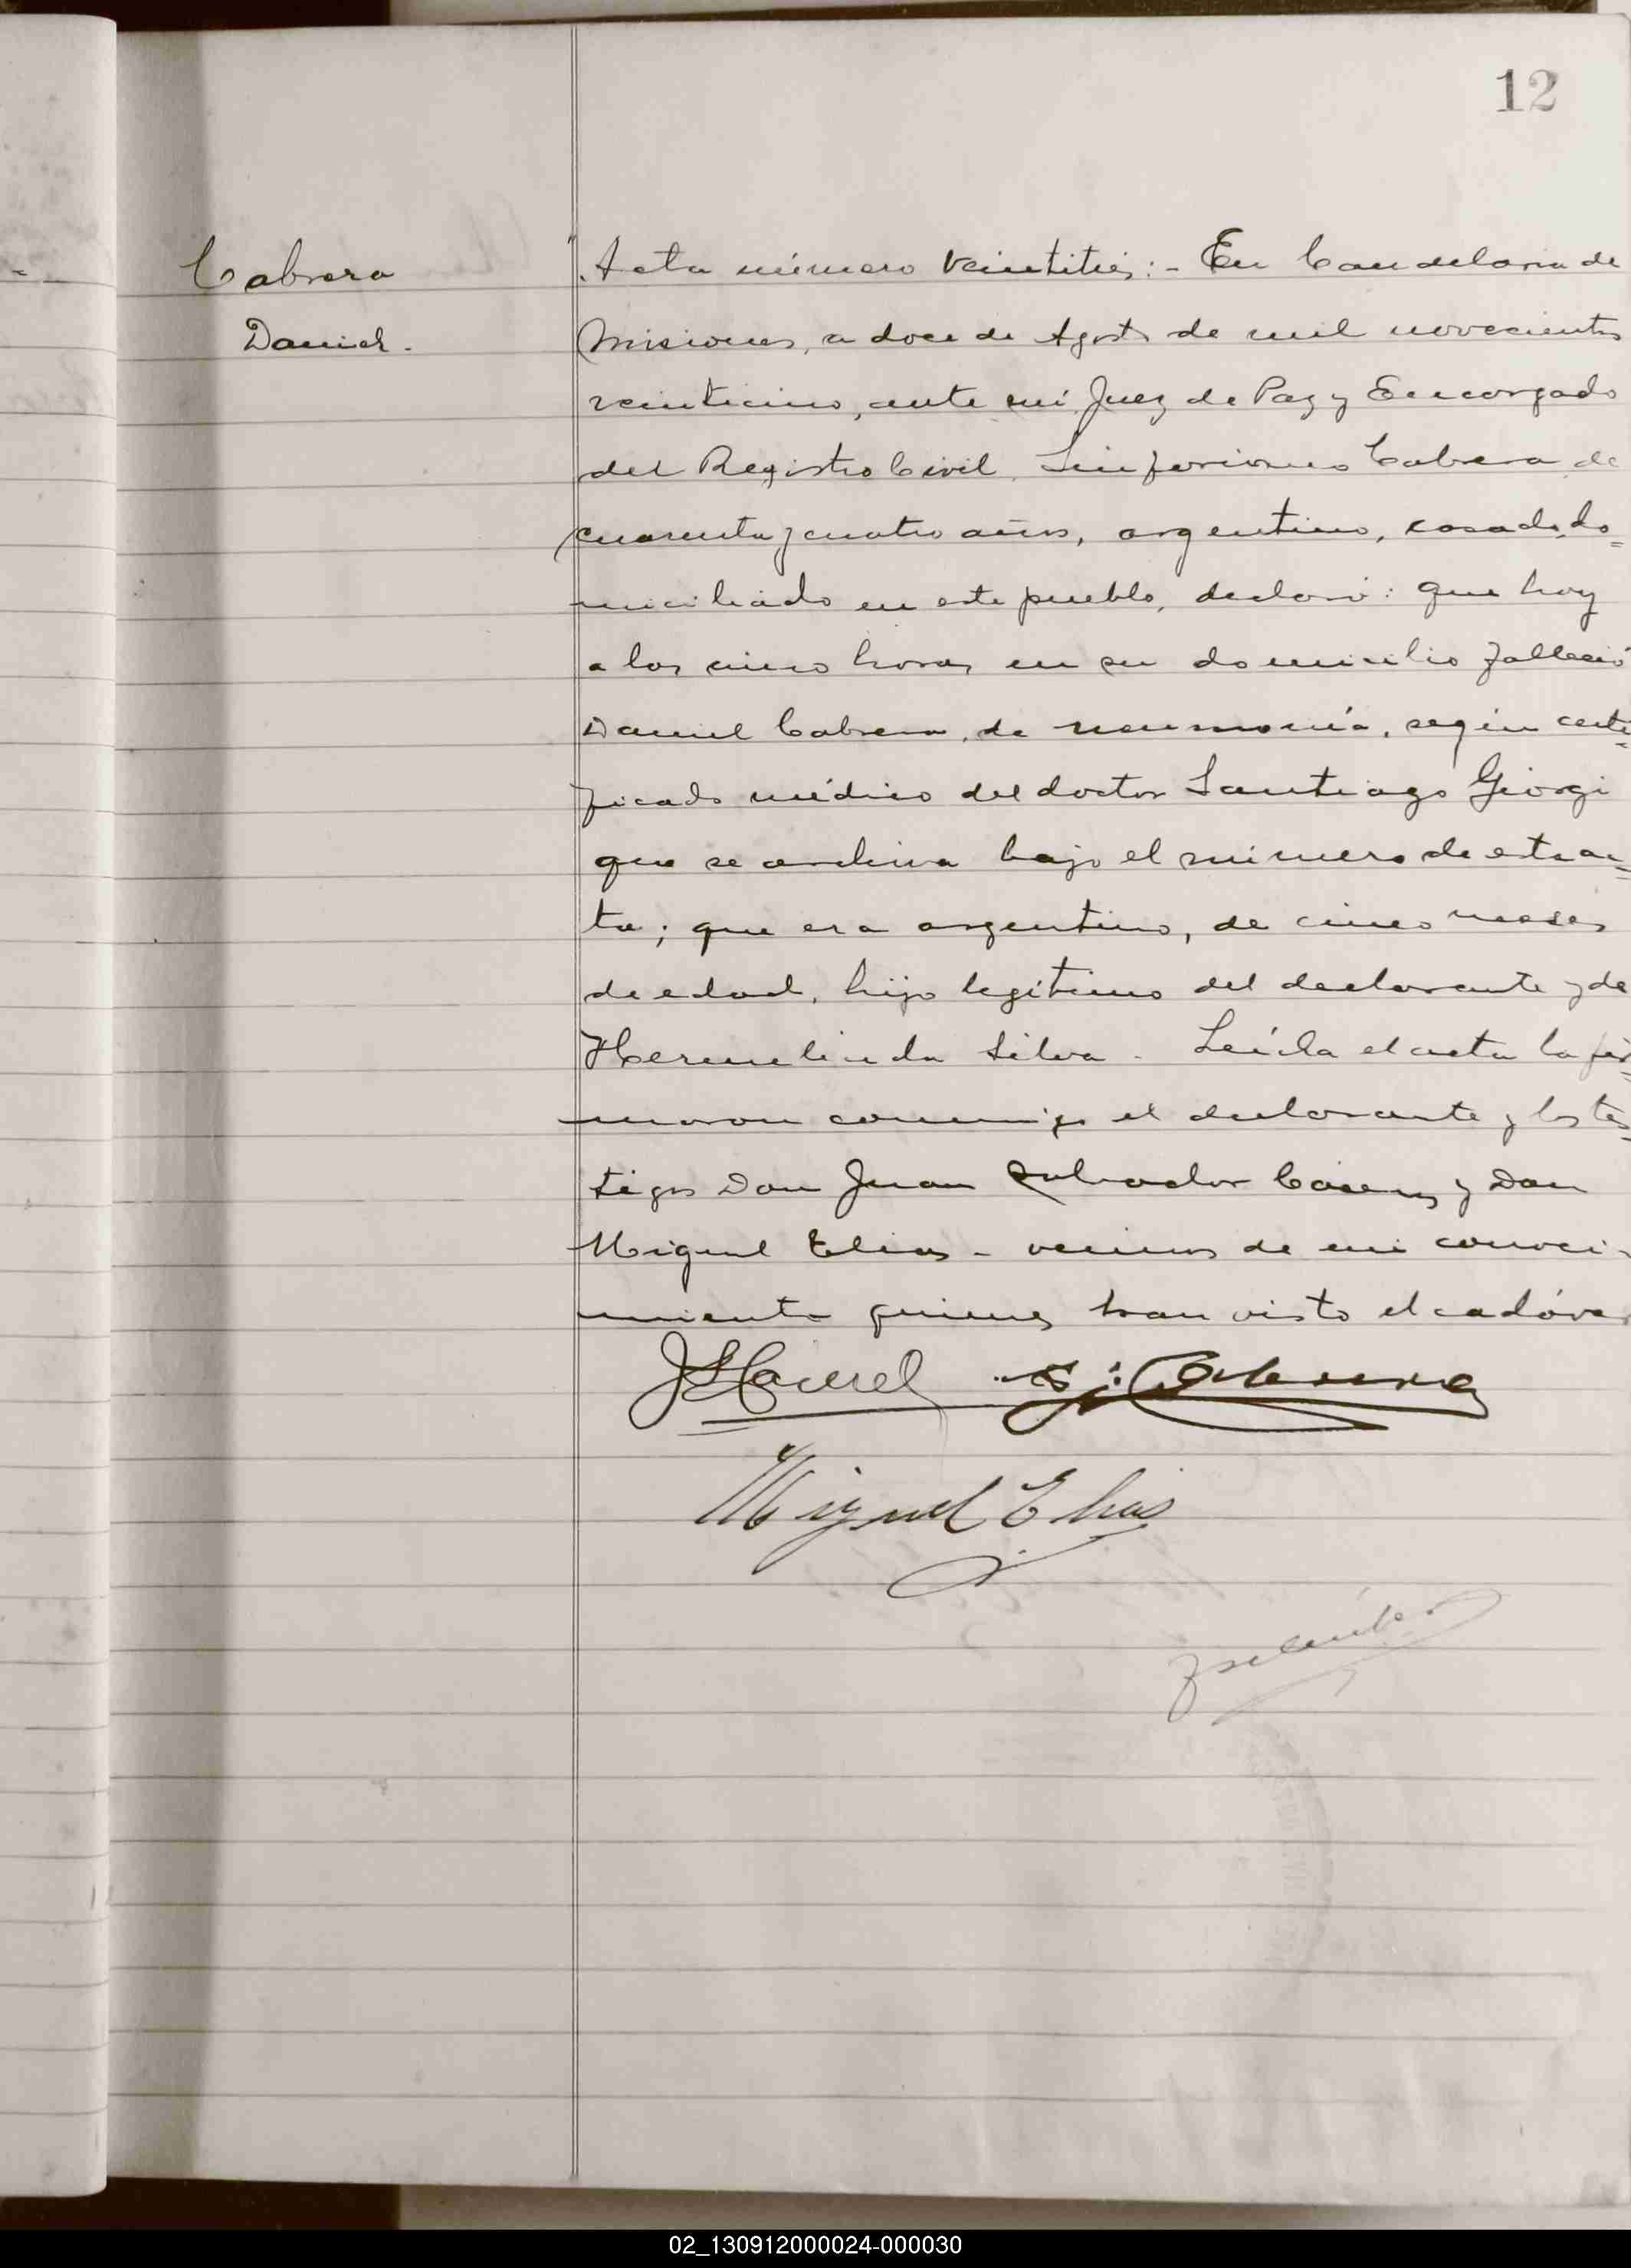 12
Cabrera
Daniel.
Acta número veintitrés:- En Candelaria de
Misiones, a doce de Agosto de mil novecientos
veinticinco, ante mí Juez de Paz y Encargado
del Registro Civil, Sinforiano Cabrera, de
cuarenta y cuatro años, argentino, casado, do=
miciliado en este pueblo, declaró: que hoy
a las cinco horas en su domicilio falleció
Daniel Cabrera, de neumonía, según certi=
ficado médico del doctor Santiago Giorgi
que se archiva bajo el número de esta ac=
ta; que era argentino, de cinco meses
de edad, hijo legítimo del declarante y de
Hermelinda Silva. Leída el acta la fir=
maron conmigo el declarante y los tes=
tigos Don Juan Salvador y Don
Miguel Elias - vecinos de mi conoci-
miento quienes han visto el cadáver
S. Cabrera
Miguel Elias
02_130912000024-000030